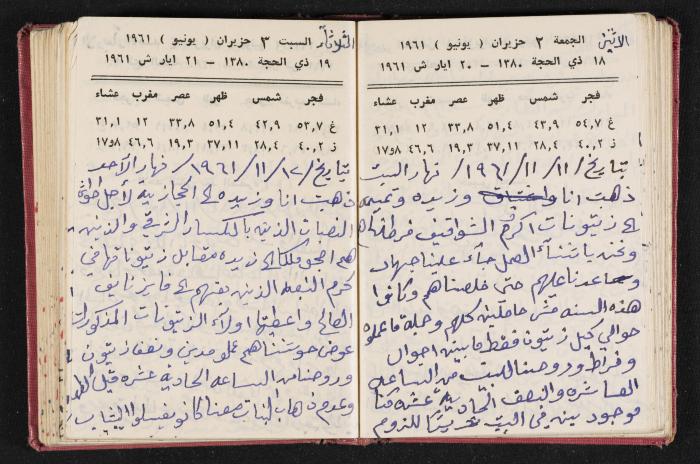 الاثنين
الجمعة ٢ حزيران ( يونيو ) ١٩٦١
١٨ ذي الحجة ١٣٨٠ – ٢٠ ايار ش ١٩٦١
فجر شمس ظهر عصر مغرب عشاء
غ ٥٤,٧ ٤٣,٩ ٥١,٤ ٣٣,٨ ١٢ ٣١,١
ز ٤٠,٢ ٢٨,٤ ٣٧,١١ ١٩,٣ ٤٦,٦ ١٧و٨
بتاريخ / ١١ / ١١ / ١٩٦١ نهار السبت
ذهبت انا وزيده وتميمه
الى زيتونات اكرم الشواقيف فرطناها
ونحن باثنآء العمل جآء علينا جهاد
وساعدنا عليهم حتى خلصناهم وكانوا
هذه السنه مش حاملين كلهم وجملة ما عملوه
حوالي كيل زيتون فقط ما بين احوال
وفراط وروحنا للبيت من الساعه
العاشره والنصف الحاديه عشه كنا
موجودينه في البيت للزوم
الثلاثآء
السبت ٣ حزيران ( يونيو ) ١٩٦١
١٩ ذي الحجة ١٣٨٠ – ٢١ ايار ش ١٩٦١
فجر شمس ظهر عصر مغرب عشاء
غ ٥٣,٧ ٤٢,٩ ٥١,٤ ٣٣,٨ ١٢ ٣١,١
ز ٤٠,٢ ٢٨,٤ ٣٧,١١ ١٩,٣ ٤٦,٦ ١٧و٨
بتاريخ / ١٢ / ١١ / ١٩٦١ / نهار الاحد
ذهبت انا وزيده الى الحجازية لاجل
النصبات الذينه بالكسار الشرقي والذينه
هم الجوملكا الى زيده مقابل زيتوناتها في
كرم النبعه الذينه بعتهم الى فايز نايف
الصالح واعطيتها اولآء الزيتونات المذكورات
عوض حوستناهم عملو مدين ونصف زيتون
وروحنا من الساعه الحاديه عشره قبل الظهر
وعدم ذهاب البنات معنا كانو بغسلوا الثياب